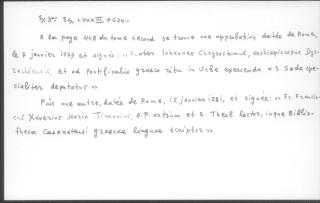 A la page 448 du tome second se trouve une approbation datée de Rome,
le 7 janvier 1879 et signée: « Frater Iohannes Chrysostomus, archiepiscopus
et ad Pontificalia graeco ritu in Urbe exercenda a S. Sede spe-
cialiter deputatus. »
Puis une autre, datée de Rome, 12 janvier 1881, et signée: « Fr. Francis-
cus Xaverius Maria Timonius, O.P. artium et S. Theol. lector, inque Biblio-
theca Casanatensi graecae linguae scriptor. »